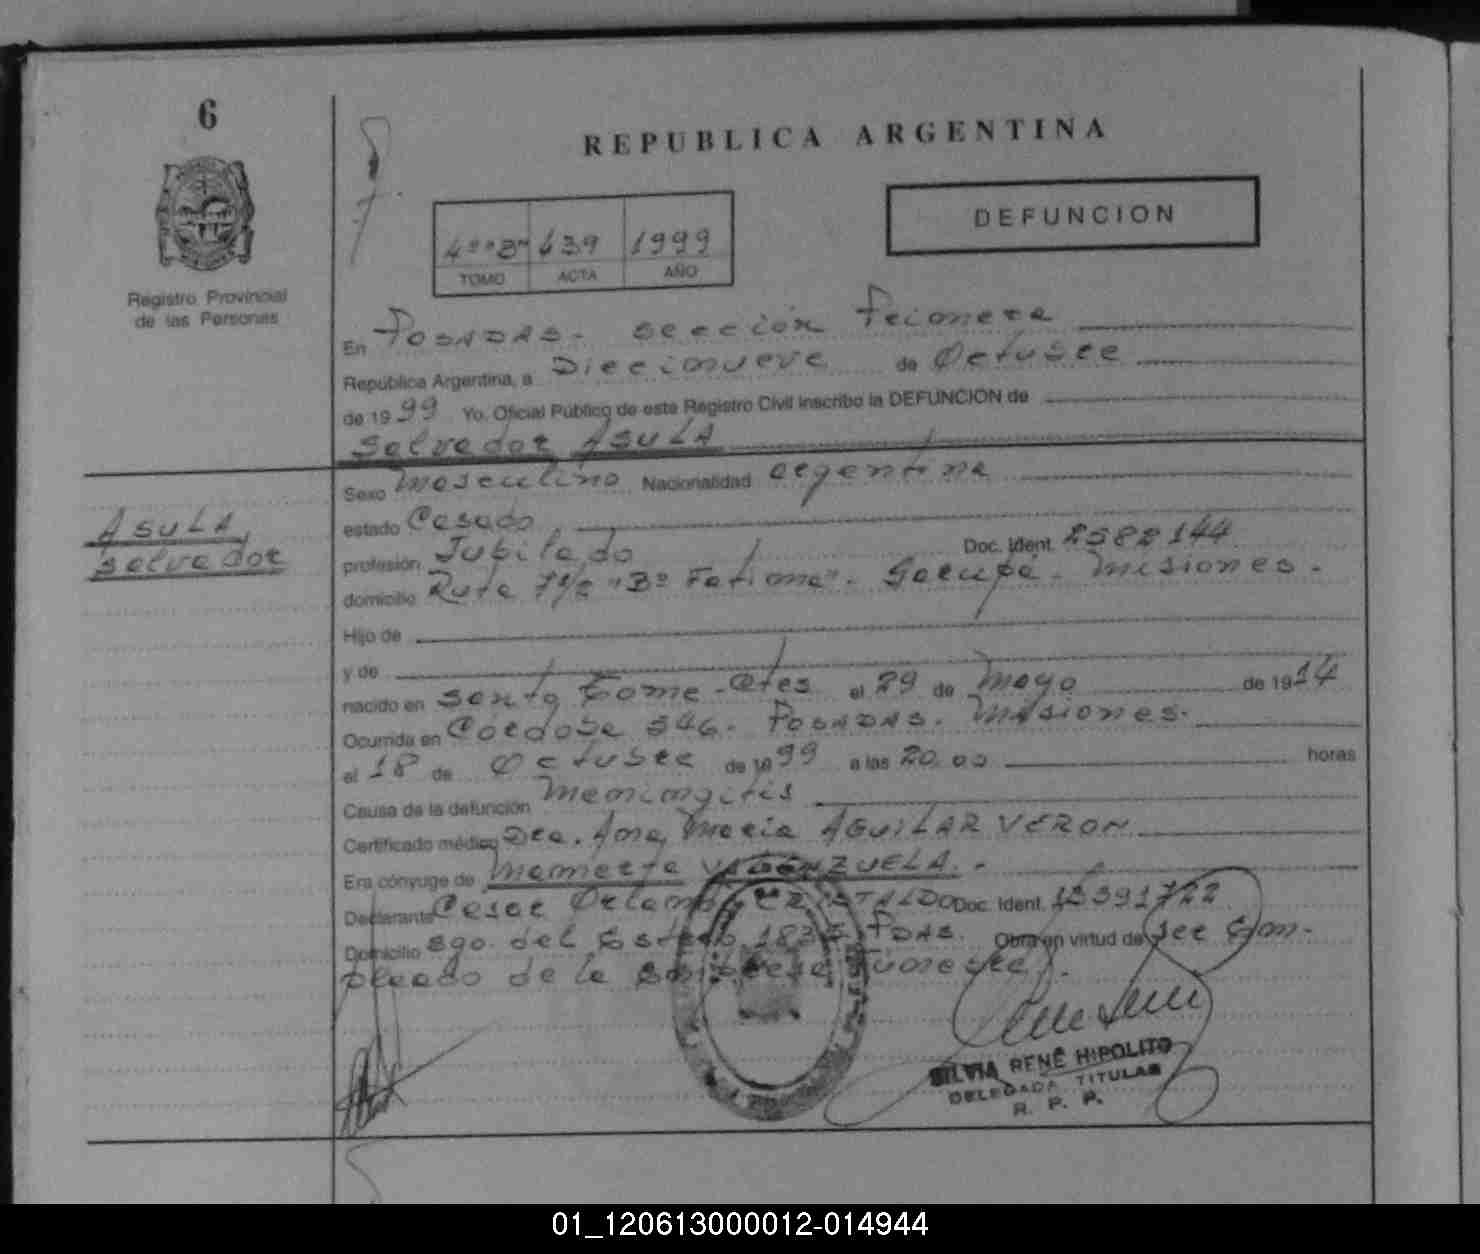 6
REPUBLICA ARGENTINA
DEFUNCION
4º "B" 639 1999
TOMO ACTA AÑO
Registro Provincial
de las Personas
En Posadas - sección Primera
República Argentina, a Diecinueve de Octubre
de 1999 Yo, Oficial Público de este Registro Civil inscribo la DEFUNCION de
Salvador ASULA
ASULA
Salvador
Sexo Masculino Nacionalidad argentina
estado Casado
profesión Jubilado Doc. Ident. 2582144
domicilio Ruta 7½ "Bº Fatima" - Garupá - Misiones -
Hijo de
y de
nacido en Santo Tome - Ctes el 29 de Mayo de 1914
Ocurrida en Córdoba 546 - Posadas - Misiones -
el 18 de Octubre de 1999 a las 20.00 horas
Causa de la defunción Meningitis
Certificado médico Dra. Ana Maria AGUILAR VERON
Era cónyuge de Mamerta VALENZUELA.-
Declarante Cesar Orlando CRISTALDO Doc. Ident. 13391722
Domicilio Sgo. del Estero 1835 Pdas. Obra en virtud de ser Em-
pleado de la Empresa Funebre.
SILVIA RENÉ HIPOLITO
DELEGADA TITULAR
R. P. P.
01_120613000012-014944